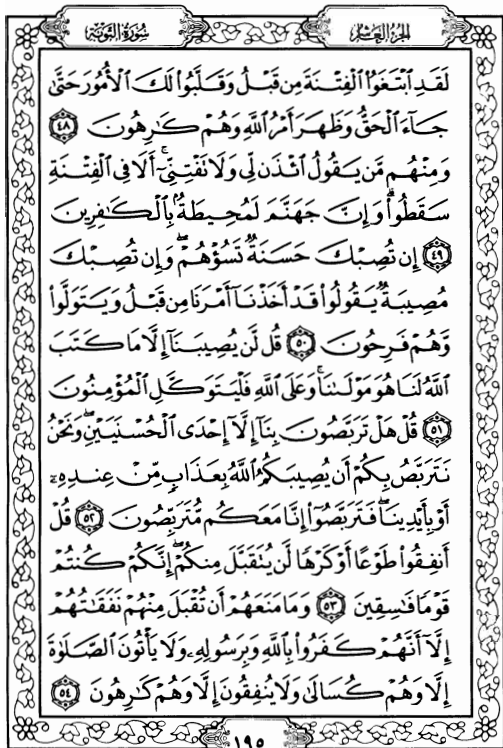 الجزء العاشر
سورة التوبة
لَقَدِ ٱبْتَغَوُا۟ ٱلْفِتْنَةَ مِن قَبْلُ وَقَلَّبُوا۟ لَكَ ٱلْأُمُورَ حَتَّىٰ
جَآءَ ٱلْحَقُّ وَظَهَرَ أَمْرُ ٱللَّهِ وَهُمْ كَٰرِهُونَ ٤٨
وَمِنْهُم مَّن يَقُولُ ٱئْذَن لِّى وَلَا نَفْتِنِّىٓ ۚ أَلَا فِى ٱلْفِتْنَةِ
سَقَطُوا۟ ۗ وَإِنَّ جَهَنَّمَ لَمُحِيطَةٌۢ بِٱلْكَٰفِرِينَ
٤٩ إِن تُصِبْكَ حَسَنَةٌ تَسُؤْهُمْ ۖ وَإِن تُصِبْكَ
مُصِيبَةٌ يَقُولُوا۟ قَدْ أَخَذْنَآ أَمْرَنَا مِن قَبْلُ وَيَتَوَلَّوا۟
وَّهُمْ فَرِحُونَ ٥٠ قُل لَّن يُصِيبَنَآ إِلَّا مَا كَتَبَ
ٱللَّهُ لَنَا هُوَ مَوْلَىٰنَا ۚ وَعَلَى ٱللَّهِ فَلْيَتَوَكَّلِ ٱلْمُؤْمِنُونَ
٥١ قُلْ هَلْ تَرَبَّصُونَ بِنَآ إِلَّآ إِحْدَى ٱلْحُسْنَيَيْنِ ۖ وَنَحْنُ
نَتَرَبَّصُ بِكُمْ أَن يُصِيبَكُمُ ٱللَّهُ بِعَذَابٍ مِّنْ عِندِهِۦٓ
أَوْ بِأَيْدِينَا ۖ فَتَرَبَّصُوٓا۟ إِنَّا مَعَكُم مُّتَرَبِّصُونَ ٥٢ قُلْ
أَنفِقُوا۟ طَوْعًا أَوْ كَرْهًا لَّن يُتَقَبَّلَ مِنكُمْ ۖ إِنَّكُمْ كُنتُمْ
قَوْمًا فَٰسِقِينَ ٥٣ وَمَا مَنَعَهُمْ أَن تُقْبَلَ مِنْهُمْ نَفَقَٰتُهُمْ
إِلَّآ أَنَّهُمْ كَفَرُوا۟ بِٱللَّهِ وَبِرَسُولِهِۦ وَلَا يَأْتُونَ ٱلصَّلَوٰةَ
إِلَّا وَهُمْ كُسَالَىٰ وَلَا يُنفِقُونَ إِلَّا وَهُمْ كَٰرِهُونَ ٥٤
١٩٥